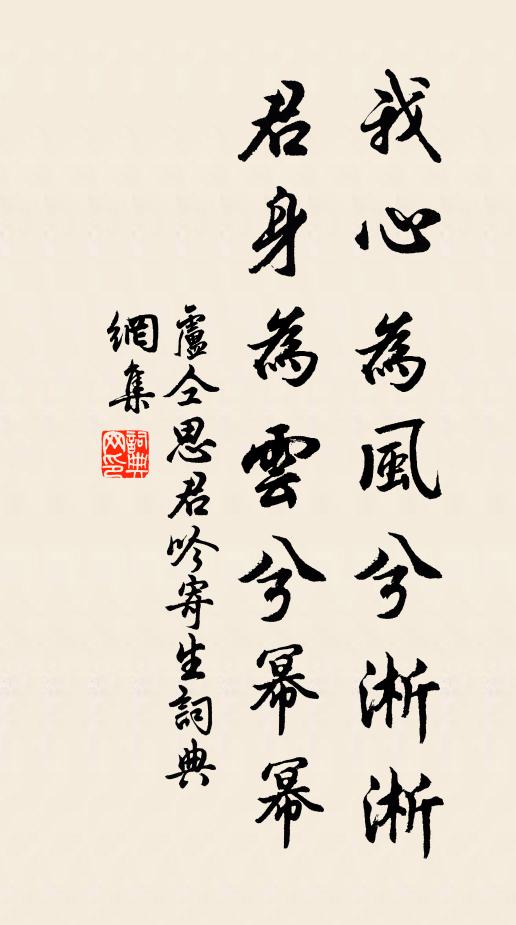 我心為風兮淅淅
君身為雲兮幂幂
盧仝思君吟寄生詞典
網集
詞典
网印